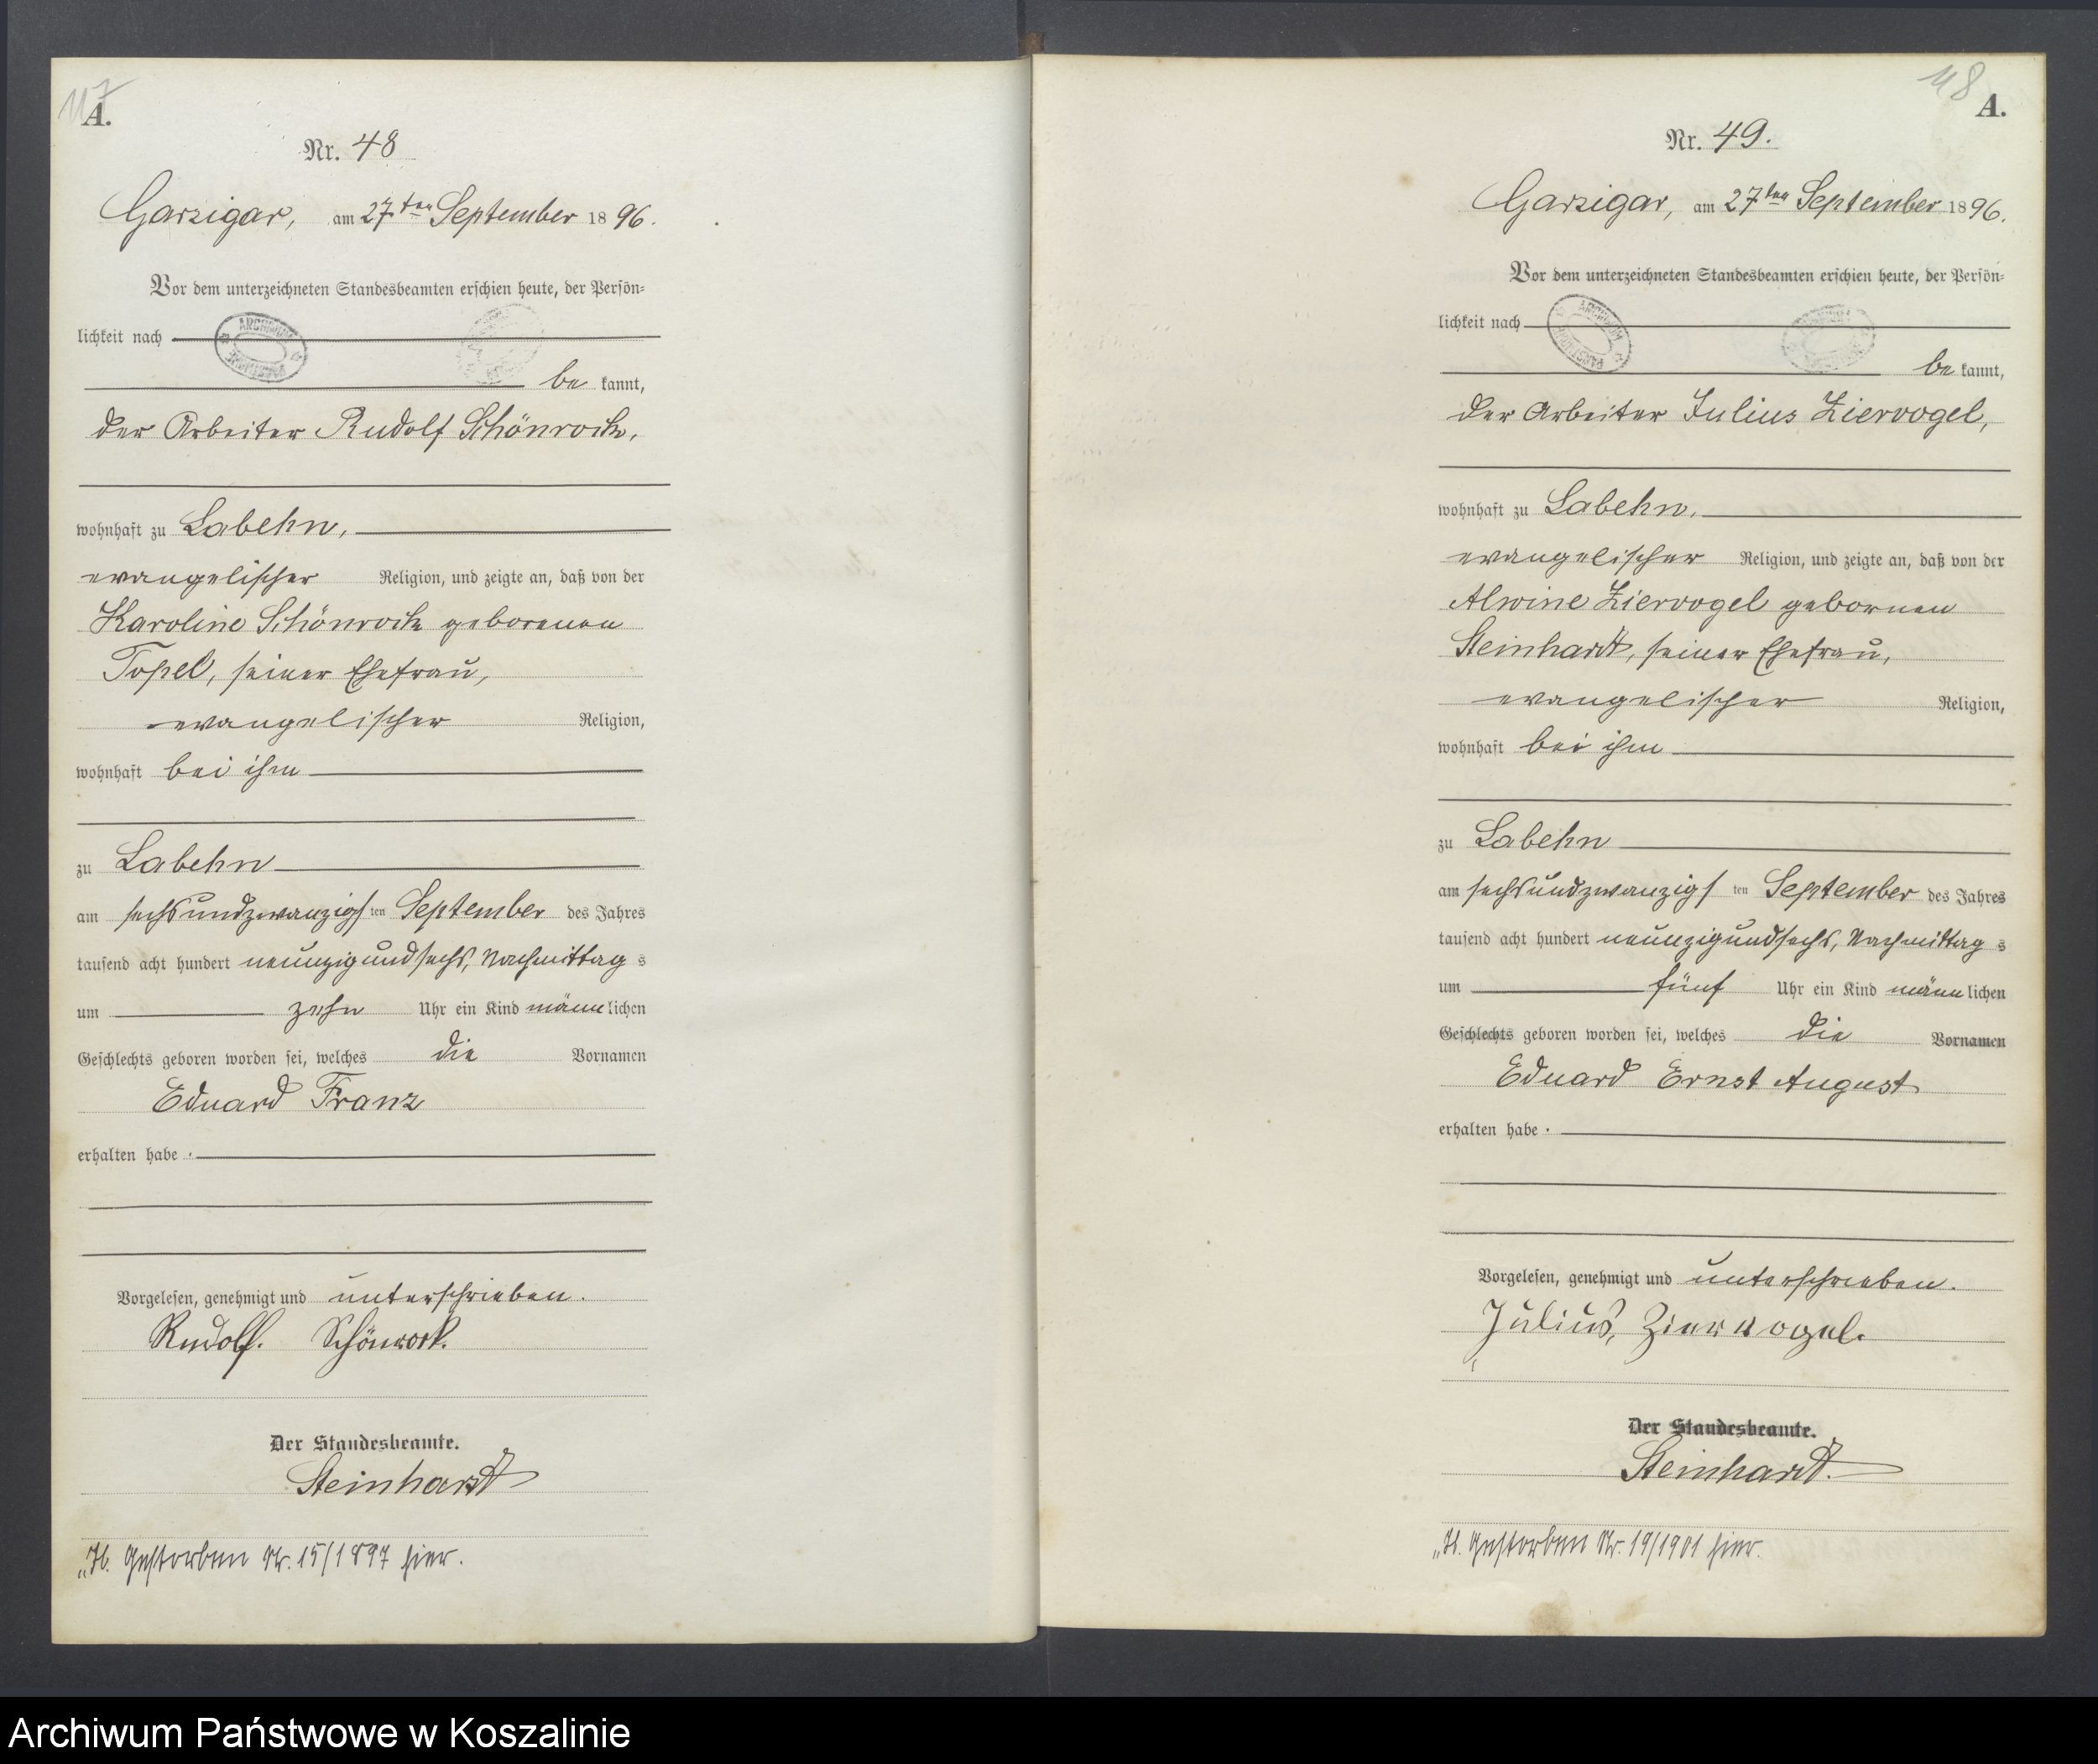 117
A.
Nr. 48
Garzigar, am 27ten September 1896.
Vor dem unterzeichneten Standesbeamten erschien heute, der Persön=
lichkeit nach
be kannt,
der Arbeiter Rudolf Schönrock,
wohnhaft zu Labehn,
evangelischer Religion, und zeigte an, daß von der
Karoline Schönrock geborenen
Topel, seiner Ehefrau,
evangelischer Religion,
wohnhaft bei ihm
zu Labehn
am sechsundzwanzigsten September des Jahres
tausend acht hundert neunzigundsechs, Nachmittags
um zehn Uhr ein Kind männlichen
Geschlechts geboren worden sei, welches die Vornamen
Eduard Franz
erhalten habe.
Vorgelesen, genehmigt und unterschrieben.
Rudolf. Schönrock.
Der Standesbeamte.
Steinhardt
„H. Gestorben Nr. 15/1897 hier.
118
A.
Nr. 49.
Garzigar, am 27ten September 1896.
Vor dem unterzeichneten Standesbeamten erschien heute, der Persön=
lichkeit nach
be kannt,
der Arbeiter Julius Ziervogel,
wohnhaft zu Labehn,
evangelischer Religion, und zeigte an, daß von der
Alwine Ziervogel gebornen
Steinhardt, seiner Ehefrau,
evangelischer Religion,
wohnhaft bei ihm
zu Labehn
am sechsundzwanzigsten September des Jahres
tausend acht hundert neunzigundsechs, Nachmittags
um fünf Uhr ein Kind männlichen
Geschlechts geboren worden sei, welches die Vornamen
Eduard Ernst August
erhalten habe.
Vorgelesen, genehmigt und unterschrieben.
Julius, Ziervogel.
Der Standesbeamte.
Steinhardt.
„H. Gestorben Nr. 19/1901 hier.
Archiwum Państwowe w Koszalinie